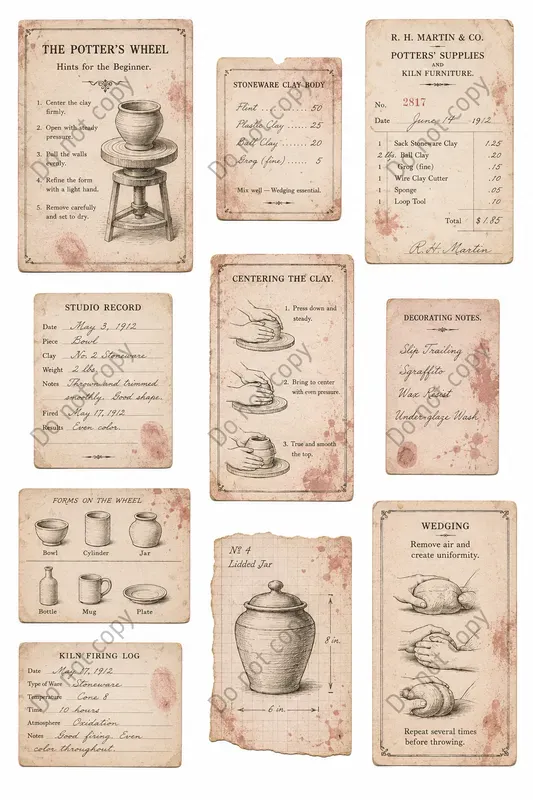 THE POTTER'S WHEEL
Hints for the Beginner.
1. Center the clay
firmly.
2. Open with steady
pressure.
3. Pull the walls
evenly.
4. Refine the form
with a light hand.
5. Remove carefully
and set to dry.
Do not copy
STONEWARE CLAY BODY
Flint ...... 50
Plastic Clay ...... 25
Ball Clay ...... 20
Grog (fine) ...... 5
Mix well — Wedging essential.
Do not copy
R. H. MARTIN & CO.
POTTERS' SUPPLIES
AND
KILN FURNITURE.
No. 2817
Date June 14 1912
1 Sack Stoneware Clay 1.25
2 lbs. Ball Clay .20
1 Grog (fine) .15
1 Wire Clay Cutter .10
1 Sponge .05
1 Loop Tool .10
Total $1.85
R. H. Martin
Do not copy
STUDIO RECORD
Date May 3, 1912
Piece Bowl
Clay No. 2 Stoneware
Weight 2 lbs.
Notes Thrown and trimmed
smoothly. Good shape.
Fired May 17, 1912
Results Even color.
Do not copy
CENTERING THE CLAY.
1. Press down and
steady.
2. Bring to center
with even pressure.
3. True and smooth
the top.
Do not copy
DECORATING NOTES.
Slip Trailing
Sgraffito
Wax Resist
Underglaze Wash
Do not copy
FORMS ON THE WHEEL
Bowl Cylinder Jar
Bottle Mug Plate
KILN FIRING LOG
Date May 17, 1912
Type of Ware Stoneware
Temperature Cone 8
Time 10 hours
Atmosphere Oxidation
Notes Good firing. Even
color throughout.
Do not copy
Nº 4
Lidded Jar
8 in.
6 in.
Do not copy
WEDGING
Remove air and
create uniformity.
Repeat several times
before throwing.
Do not copy